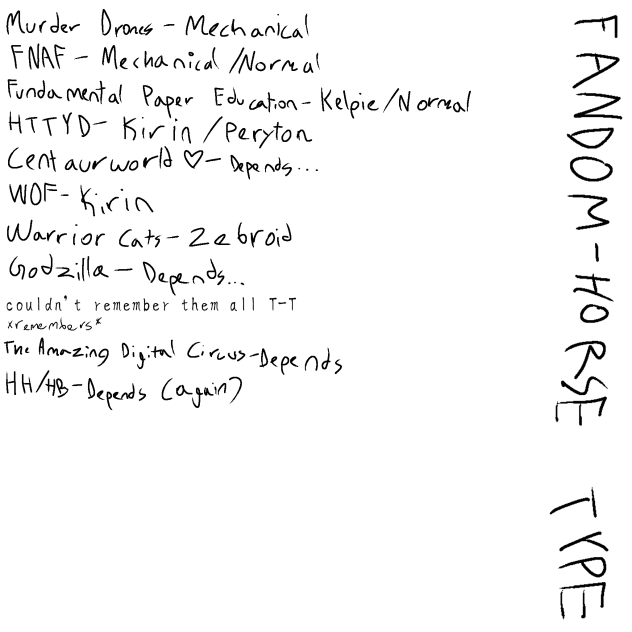 Murder Drones - Mechanical
FNAF - Mechanical /Normal
Fundamental Paper Education - Kelpie/Normal
HTTYD - Kirin /Peryton
Centaurworld ♡ - Depends...
WOF - Kirin
Warrior Cats - Zebroid
Godzilla - Depends...
couldn't remember them all T-T
*remembers*
The Amazing Digital Circus - Depends
HH/HB - Depends (again)
FANDOM - HORSE TYPE